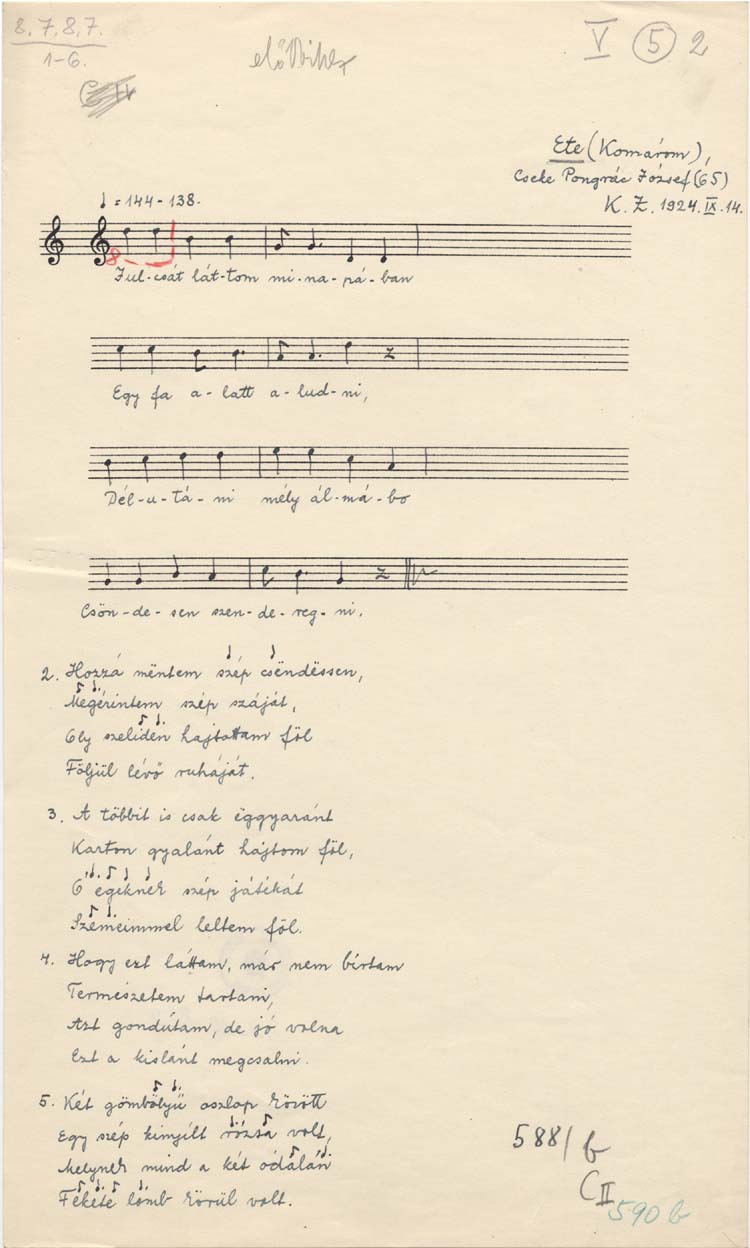 8, 7, 8, 7.
1-6.
V 5 2
Ete (Komárom),
Cseke Pongrác József (65)
K. Z. 1924. IX. 14.
= 144-138.
8
Julcsát lát-tom mi-na-pá-ban
Egy fa a-latt a-lud-ni,
Dél-u-tá-ni mély ál-má-bo
Csön-de-sen szen-de-reg-ni.
2. Hozzá mëntem szép csëndëssen,
Megérintem szép száját,
Oly szeliden hajtottam föl
Följül lévő ruháját.
3. A többit is csak ëggyaránt
Karton gyalánt hajtom föl,
O egeknek szép játékát
Szemeimmel leltem föl.
4. Hogy ezt láttam, már nem bírtam
Természetem tartani,
Azt gondútam, de jó volna
Ezt a kislánt megcsalni.
5. Két gömbölyű oszlap között
Egy szép kinyílt rózsa volt,
Melynek mind a két ódalán
Fekete lomb körül volt.
588/b
C II
590 b